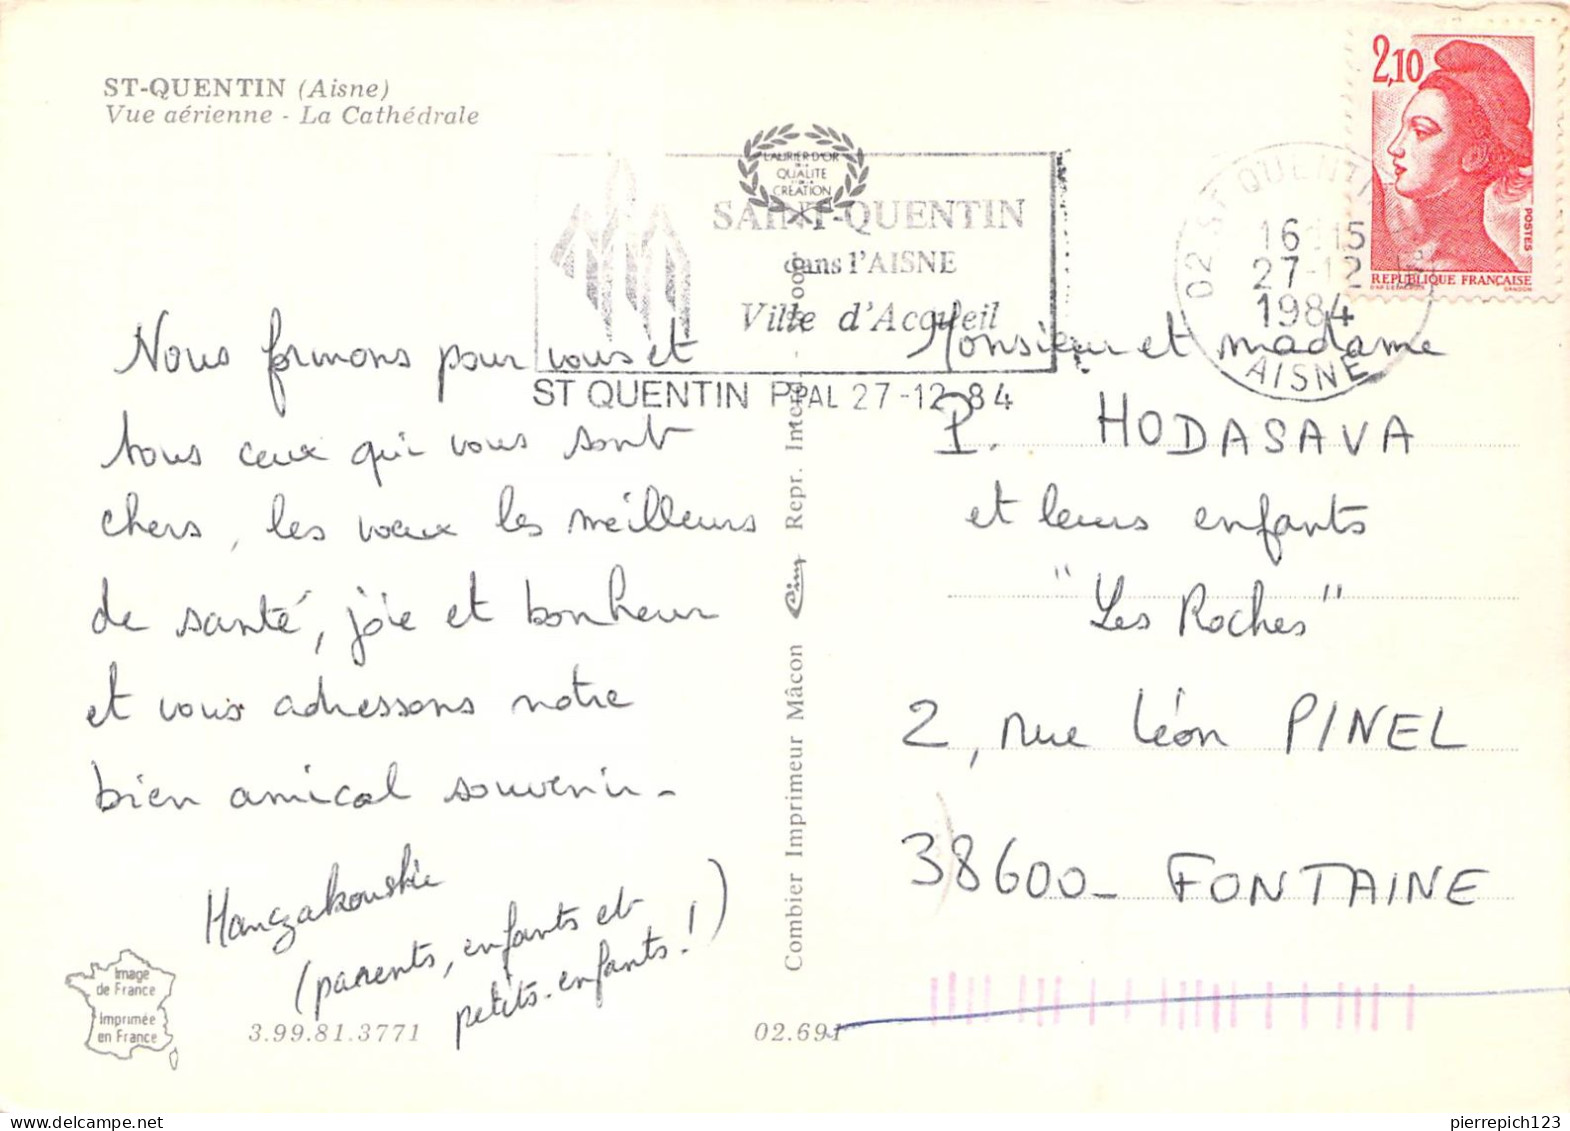 ST-QUENTIN (Aisne)
Vue aérienne - La Cathédrale
LAURIER D'OR
DE LA
QUALITE
CREATION
SAINT-QUENTIN
dans l'AISNE
Ville d'Accueil
ST QUENTIN PPAL 27-12 84
02 ST QUENTIN
16 15
27-12
1984
AISNE
2,10
POSTES
REPUBLIQUE FRANÇAISE
GANDON
Nous formons pour vous et
tous ceux qui vous sont
chers, les voeux les meilleurs
de santé, joie et bonheur
et vous adressons notre
bien amical souvenir -
(parents, enfants et
petits-enfants!)
Combier Imprimeur Mâcon Cim Repr. Interd.
Monsieur et madame
P. HODASAVA
et leurs enfants
"Les Roches"
2, rue Léon PINEL
38600 - FONTAINE
Image
de France
Imprimée
en France
3.99.81.3771
02.691
pierrepich123